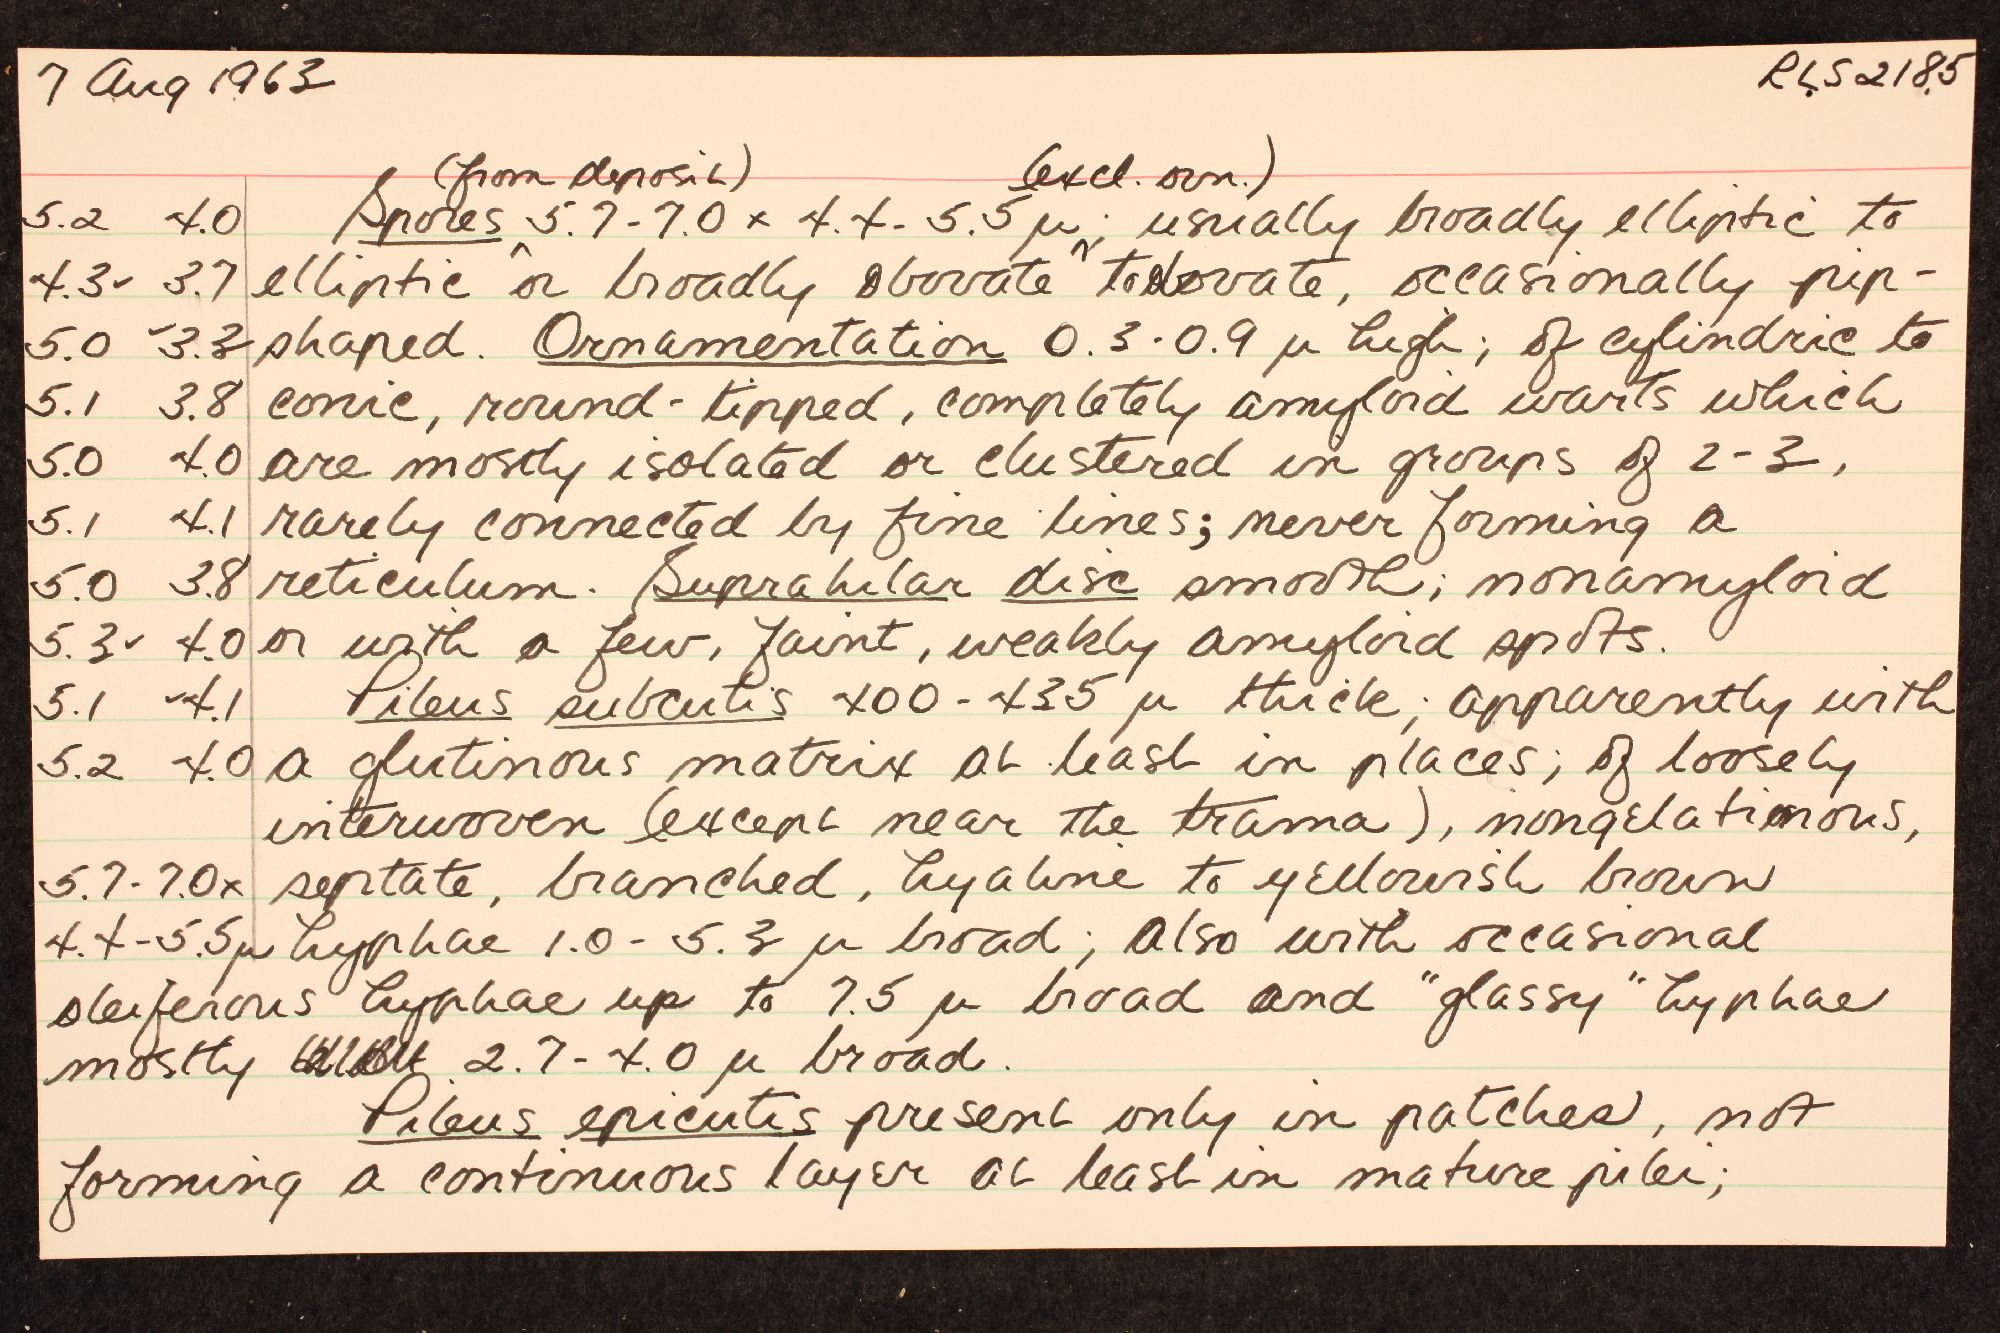 7 Aug 1963 RLS 2185
(from deposit) (excl. orn.)
5.2 4.0 Spores 5.7-7.0 x 4.4-5.5 µ; usually broadly elliptic to
4.3 3.7 elliptic or broadly obovate to obovate, occasionally pip-
5.0 3.3 shaped. Ornamentation 0.3-0.9 µ high; of cylindric to
5.1 3.8 conic, round-tipped, completely amyloid warts which
5.0 4.0 are mostly isolated or clustered in groups of 2-3,
5.1 4.1 rarely connected by fine lines; never forming a
5.0 3.8 reticulum. Suprahilar disc smooth; nonamyloid
5.3 4.0 or with a few, faint, weakly amyloid spots.
5.1 4.1 Pileus subcutis 400-435 µ thick; apparently with
5.2 4.0 a glutinous matrix at least in places; of loosely
interwoven (except near the trama), nongelatinous,
5.7-7.0x septate, branched, hyaline to yellowish brown
4.4-5.5µ hyphae 1.0-5.3 µ broad; also with occasional
oleiferous hyphae up to 7.5 µ broad and "glassy" hyphae
mostly 2.7-4.0 µ broad.
Pileus epicutis present only in patches, not
forming a continuous layer at least in mature pilei;